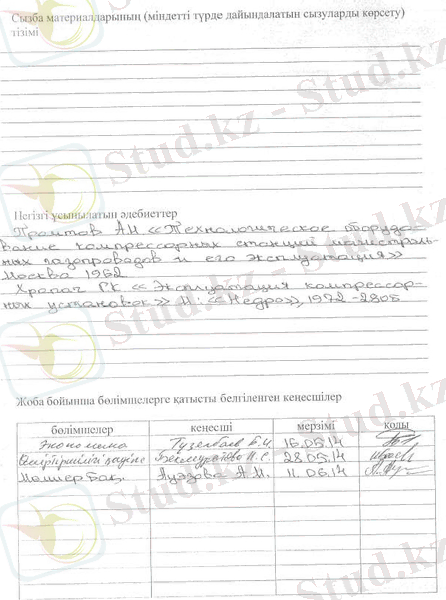 Сызба материалдарының (міндетті түрде дайындалатын сызуларды көрсету)
тізімі
Stud.kz - Stud.kz
Негізгі ұсынылатын әдебиеттер
АИ «Технологическое оборудо-
вание компрессорных станций магистраль-
ных газопроводов и его эксплуатация»
Москва 1962
Храпач РК «Эксплуатация компрессор-
ных установок» М: «Недра», 1972 -280б
Жоба бойынша бөлімшелерге қатысты белгіленген кеңесшілер
бөлімшелер кеңесші мерзімі қолы
Экономика Б.И. 16.05.14
28.05.14
А.И. 11.06.14